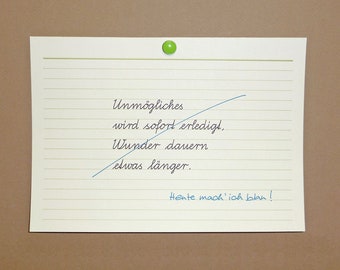 Unmögliches
wird sofort erledigt,
Wunder dauern
etwas länger.
Heute mach' ich blau!